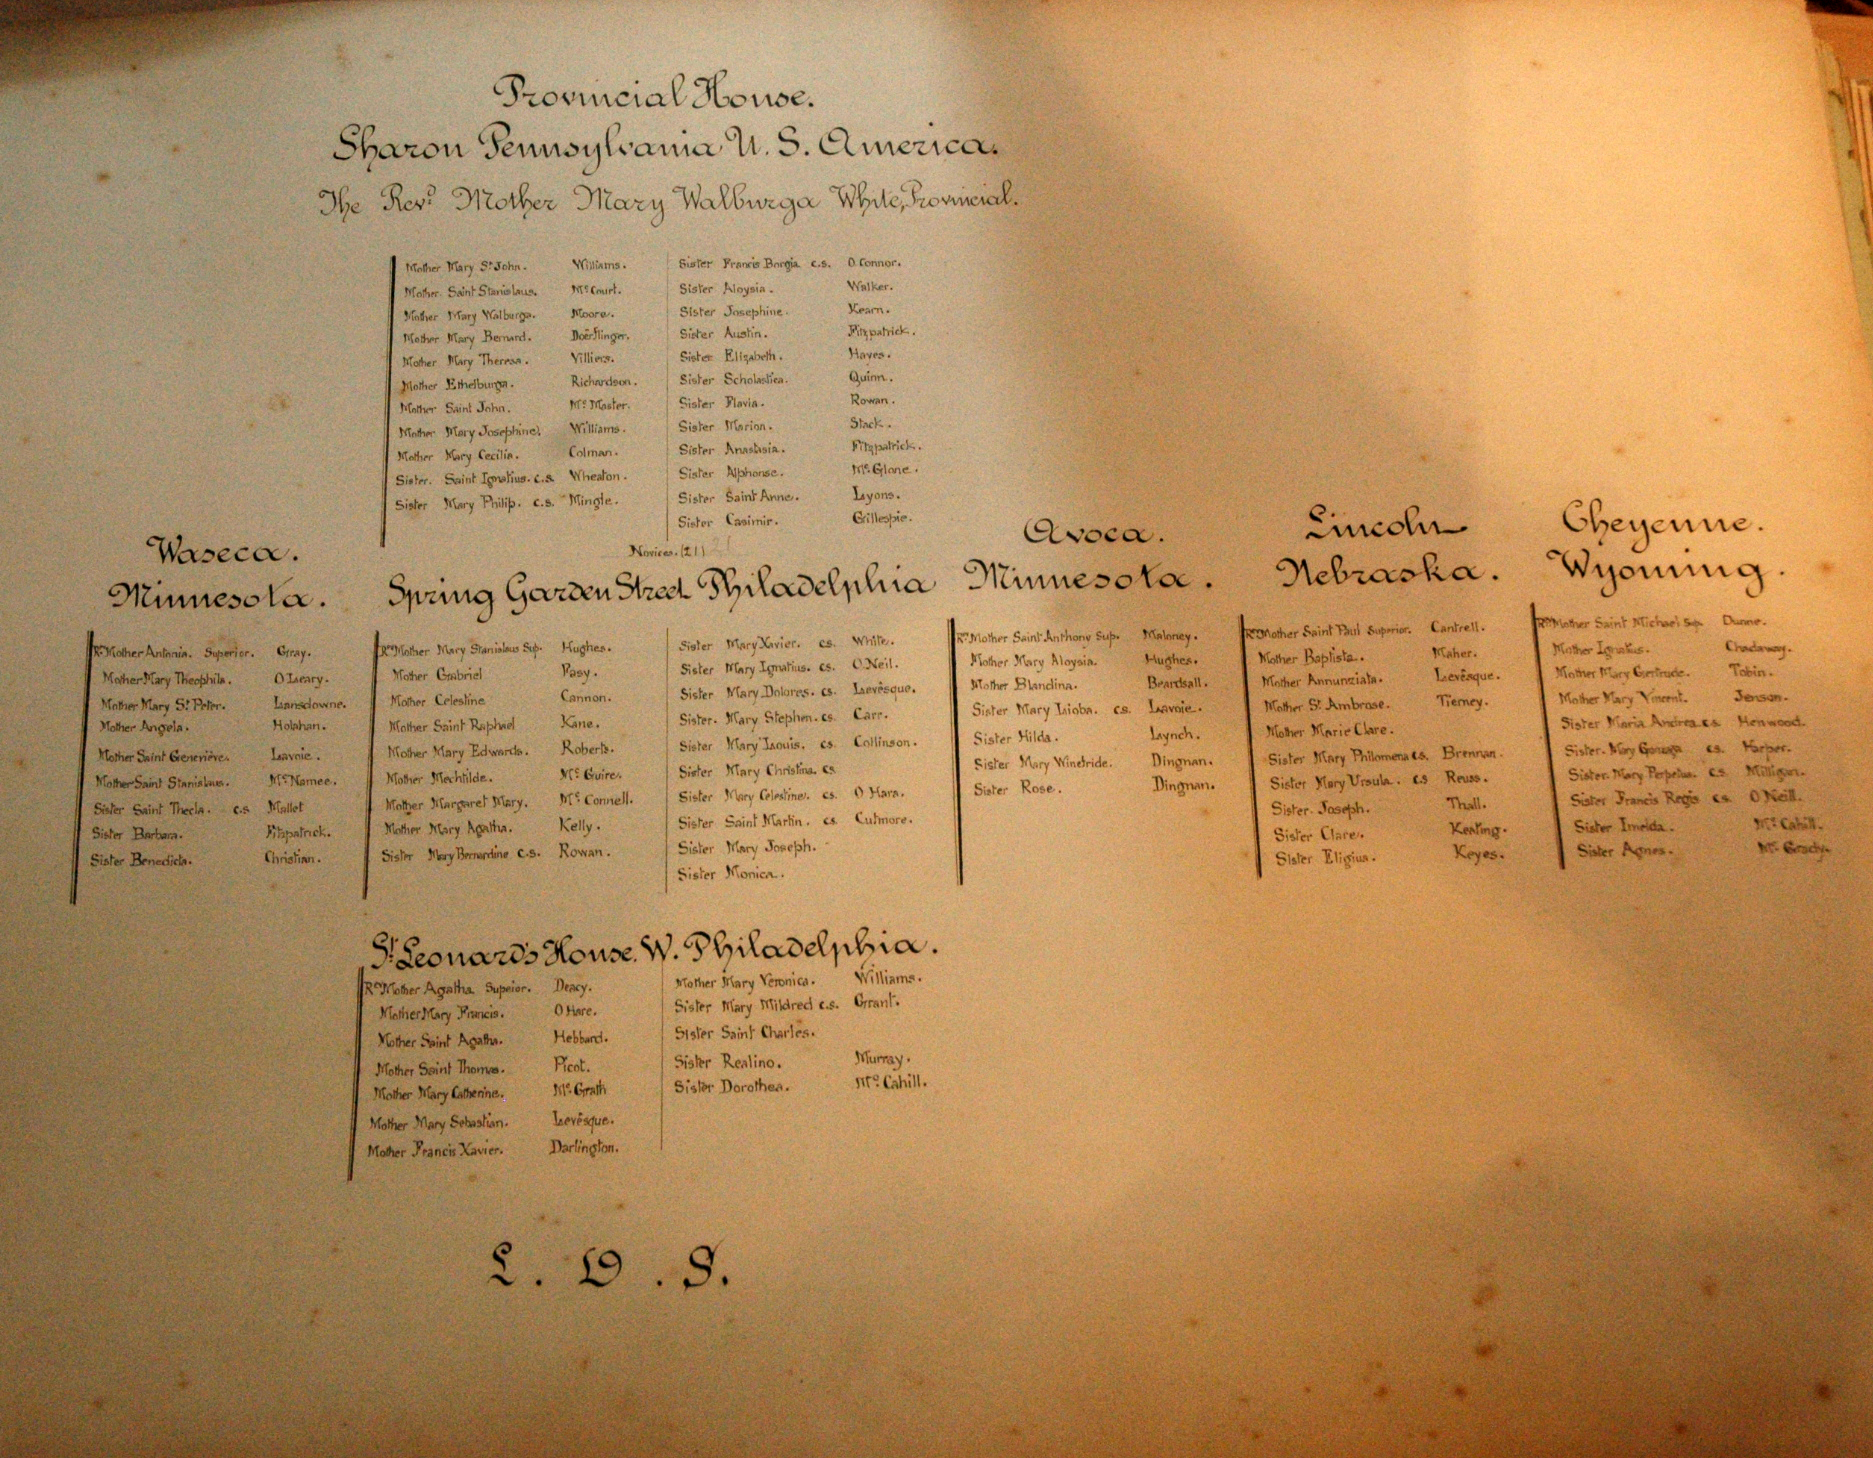 Provincial House.
Sharon Pennsylvania U. S. America.
The Revd Mother Mary Walburga White, Provincial.
Mother Mary St John. Williams.
Mother Saint Stanislaus. Mc Court.
Mother Mary Walburga. Moore.
Mother Mary Bernard. Doerflinger.
Mother Mary Theresa. Villiers.
Mother Ethelburga. Richardson.
Mother Saint John. Mc Master.
Mother Mary Josephine. Williams.
Mother Mary Cecilia. Colman.
Sister. Saint Ignatius. c.s. Wheaton.
Sister Mary Philip. c.s. Mingle.
Sister Francis Borgia c.s. O Connor.
Sister Aloysia. Walker.
Sister Josephine. Kearn.
Sister Austin. Fitzpatrick.
Sister Elizabeth. Hayes.
Sister Scholastica. Quinn.
Sister Flavia. Rowan.
Sister Marion. Stack.
Sister Anastasia. Fitzpatrick.
Sister Alphonse. Mc Glone.
Sister Saint Anne. Lyons.
Sister Casimir. Gillespie.
Novices. (21)
Waseca.
Minnesota.
Rd Mother Antonia. Superior. Gray.
Mother Mary Theophila. O Leary.
Mother Mary St Peter. Lansdowne.
Mother Angela. Holahan.
Mother Saint Genevieve. Lavoie.
Mother Saint Stanislaus. Mc Namee.
Sister Saint Thecla. c.s Mallet
Sister Barbara. Fitzpatrick.
Sister Benedicta. Christian.
Spring Garden Street Philadelphia
Rd Mother Mary Stanislaus Sup. Hughes.
Mother Gabriel Pasy.
Mother Celestine Cannon.
Mother Saint Raphael Kane.
Mother Mary Edwards. Roberts.
Mother Mechtilde. Mc Guire.
Mother Margaret Mary. Mc Connell.
Mother Mary Agatha. Kelly.
Sister Mary Bernardine c.s. Rowan.
Sister Mary Xavier. cs. White.
Sister Mary Ignatius. cs. O Neil.
Sister Mary Dolores. cs. Levêsque.
Sister. Mary Stephen. cs. Carr.
Sister Mary Louis. cs. Collinson.
Sister Mary Christina. cs
Sister Mary Celestine. cs. O Hara.
Sister Saint Martin. cs. Culmore.
Sister Mary Joseph.
Sister Monica.
Avoca.
Minnesota.
Rd Mother Saint Anthony Sup. Maloney.
Mother Mary Aloysia. Hughes.
Mother Blandina. Beardsall.
Sister Mary Lioba. cs. Lavoie.
Sister Hilda. Lynch.
Sister Mary Winefride. Dingnan.
Sister Rose. Dingnan.
Lincoln
Nebraska.
Rd Mother Saint Paul Superior. Cantrell.
Mother Baptista. Maher.
Mother Annunziata. Levêsque.
Mother St Ambrose. Tierney.
Mother Marie Clare.
Sister Mary Philomena cs. Brennan.
Sister Mary Ursula. cs Reuss.
Sister Joseph. Thall.
Sister Clare. Keating.
Sister Eligius. Keyes.
Cheyenne.
Wyoming.
Rd Mother Saint Michael Sup. Dunne.
Mother Ignatius. Chadaway.
Mother Mary Gertrude. Tobin.
Mother Mary Vincent. Jenson.
Sister Maria Andrea cs Henwood.
Sister. Mary Gonzaga cs. Harper.
Sister. Mary Perpetua. cs. Milligan.
Sister Francis Regis cs. O Neill.
Sister Imelda. Mc Cahill.
Sister Agnes. Mc Grady.
St Leonard's House. W. Philadelphia.
Rd Mother Agatha Superior. Deacy.
Mother Mary Francis. O Hare.
Mother Saint Agatha. Hebbard.
Mother Saint Thomas. Picot.
Mother Mary Catherine. Mc Grath
Mother Mary Sebastian. Levêsque.
Mother Francis Xavier. Darlington.
Mother Mary Veronica. Williams.
Sister Mary Mildred c.s. Grant.
Sister Saint Charles.
Sister Realino. Murray.
Sister Dorothea. Mc Cahill.
L. D. S.